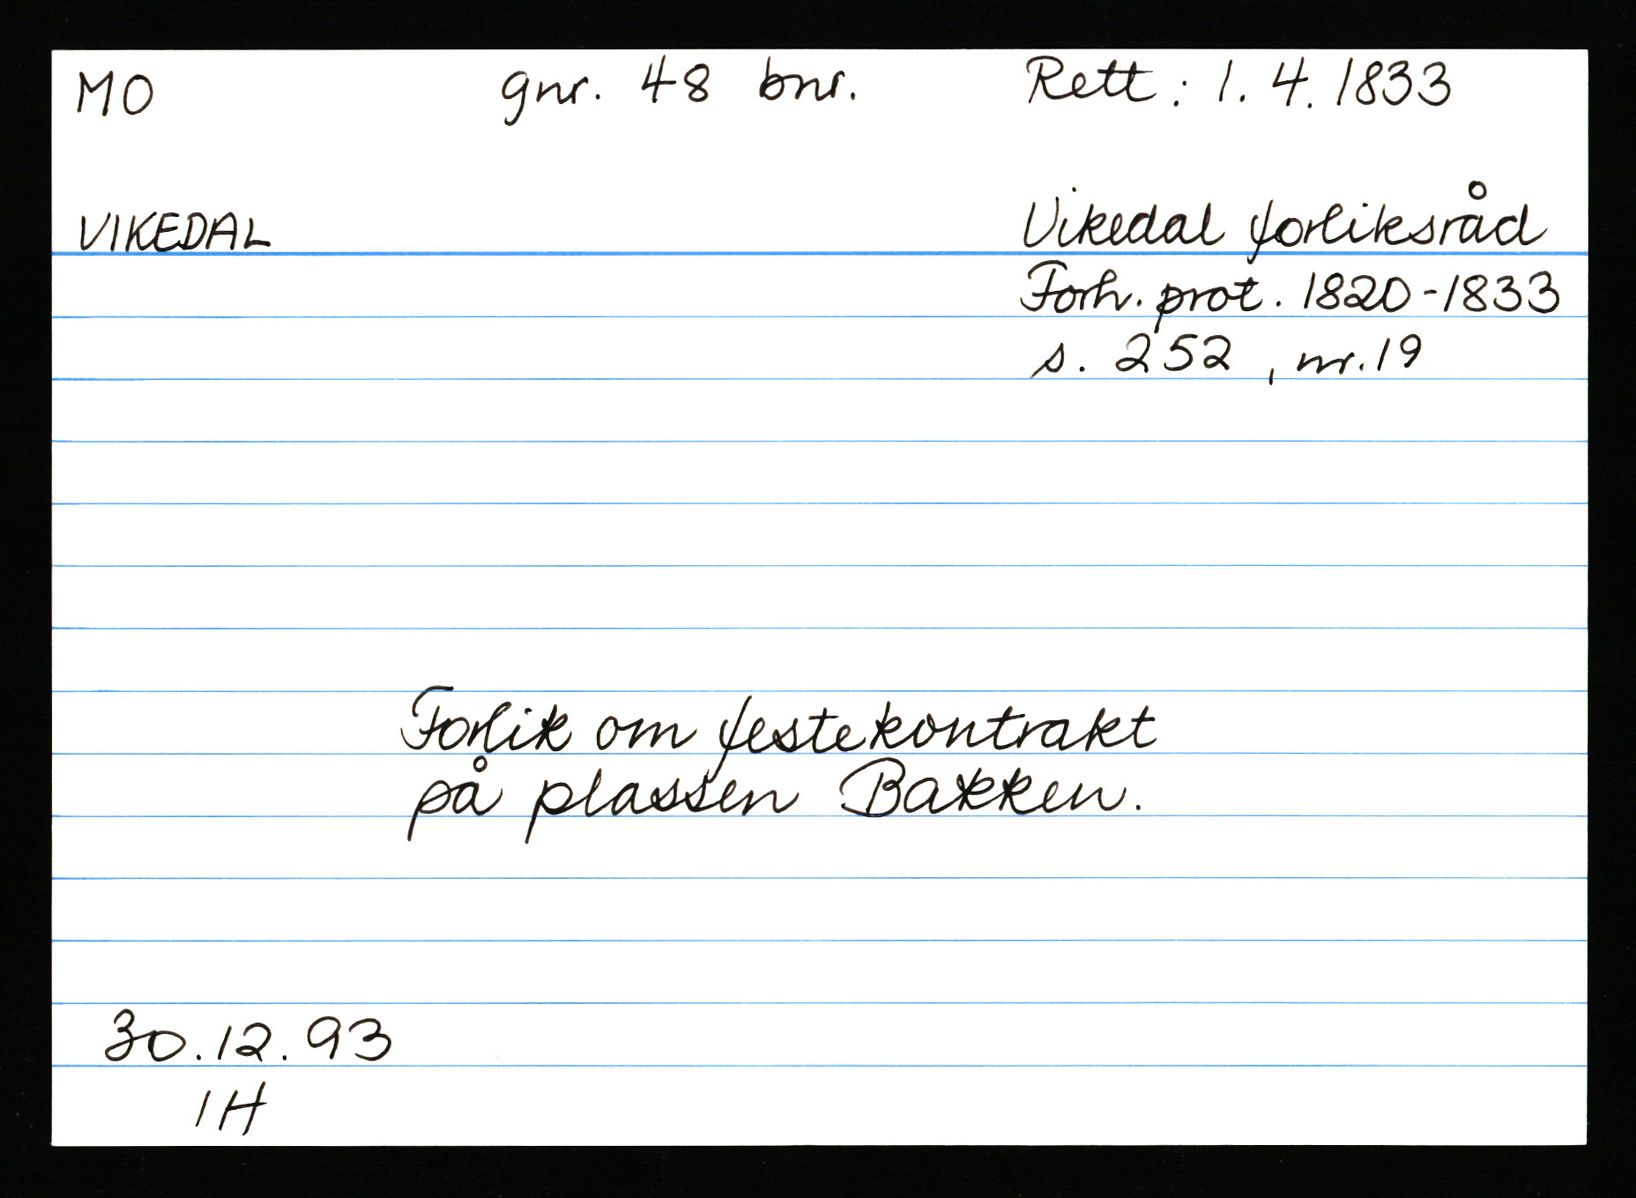 MO gnr. 48 bnr. Rett: 1. 4. 1833
VIKEDAL Vikedal forliksråd
Forh. prot. 1820-1833
s. 252, nr. 19
Forlik om festekontrakt
på plassen Bakken.
30.12.93
IH